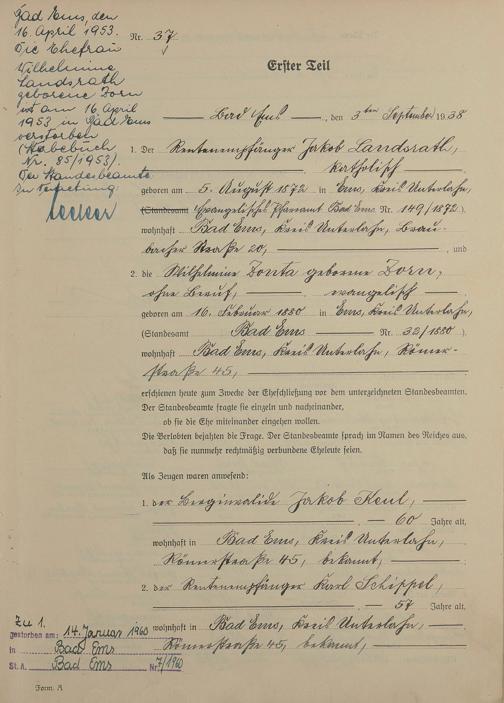 Bad Ems, den
16. April 1953.
Die Ehefrau
Wilhelmine
Landsrath
geborene Zorn
ist am 16. April
1953 in Bad Ems
verstorben
(Sterbebuch
Nr. 35/1953).
Der Standesbeamte
In Vertretung:
Nr. 37
Erster Teil
Bad Ems, den 3ten September 1938
1. Der Rentenempfänger Jakob Landsrath,
katholisch
geboren am 5. August 1872 in Ems, Kreis Unterlahn,
(Standesamt Evangelisches Pfarramt Bad Ems Nr. 149/1872).
wohnhaft Bad Ems, Kreis Unterlahn, Brau-
bacher Straße 20, und
2. die Wilhelmine Zonta geborene Zorn,
ohne Beruf, evangelisch
geboren am 16. Februar 1880 in Ems, Kreis Unterlahn,
(Standesamt Bad Ems Nr. 32/1880).
wohnhaft Bad Ems, Kreis Unterlahn, Römer-
straße 45,
erschienen heute zum Zwecke der Eheschließung vor dem unterzeichneten Standesbeamten.
Der Standesbeamte fragte sie einzeln und nacheinander,
ob sie die Ehe miteinander eingehen wollen.
Die Verlobten bejahten die Frage. Der Standesbeamte sprach im Namen des Reiches aus,
daß sie nunmehr rechtmäßig verbundene Eheleute seien.
Als Zeugen waren anwesend:
1. der Berginvalide Jakob Keul,
60 Jahre alt,
wohnhaft in Bad Ems, Kreis Unterlahn,
Römerstraße 45, bekannt,
2. der Rentenempfänger Karl Schippel,
57 Jahre alt,
wohnhaft in Bad Ems, Kreis Unterlahn,
Römerstraße 45, bekannt,
Zu 1.
gestorben am: 14. Januar 1960
in Bad Ems
St. A. Bad Ems Nr 7/1960
Form. A